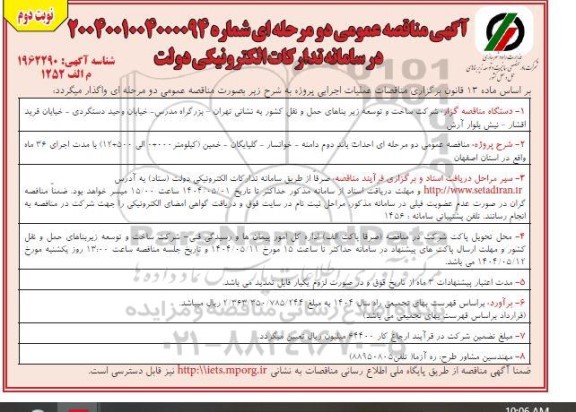 نوبت دوم
آگهی مناقصه عمومی دو مرحله ای شماره ۲۰۰۴۰۰۱۰۰۴۰۰۰۰۹۴
در سامانه تدارکات الکترونیکی دولت
شناسه آگهی: ۱۹۶۲۲۹۰
م الف ۱۲۵۲
بر اساس ماده ۱۳ قانون برگزاری مناقصات عملیات اجرایی پروژه به شرح زیر بصورت مناقصه عمومی دو مرحله ای واگذار میگردد:
۱- دستگاه مناقصه گزار: شرکت ساخت و توسعه زیر بناهای حمل و نقل کشور به نشانی تهران - بزرگراه مدرس- خیابان وحید دستگردی - خیابان فرید
افشار - نبش بلوار آرش
۲- شرح پروژه: مناقصه عمومی دو مرحله ای احداث باند دوم دامنه - خوانسار - گلپایگان - خمین (کیلومتر ۰۰۰+۰ الی ۵۰۰+۱۲) با مدت اجرای ۳۶ ماه
واقع در استان اصفهان
۳- سیر مراحل دریافت اسناد و برگزاری فرآیند مناقصه: صرفا از طریق سامانه تدارکات الکترونیکی دولت (ستاد) به آدرس
http://www.setadiran.ir و مهلت دریافت اسناد از سامانه مذکور حداکثر تا تاریخ ۱۴۰۴/۰۵/۰۱ ساعت ۱۵/۰۰ میسر خواهد بود. ضمناً مناقصه
گران در صورت عدم عضویت قبلی در سامانه مذکور، مراحل ثبت نام در سایت فوق و دریافت گواهی امضای الکترونیکی را جهت شرکت در مناقصه به
انجام رسانند. تلفن پشتیبانی سامانه : ۱۴۵۶
۴- محل تحویل پاکت شرکت در مناقصه (صرفا پاکت الف) اداره کل امور پیمان ها و رسیدگی فنی- شرکت ساخت و توسعه زیربناهای حمل و نقل
کشور و مهلت ارسال پاکت های پیشنهاد در سامانه حداکثر تا ساعت ۱۵ مورخ ۱۴۰۴/۰۵/۱۱ و تاریخ جلسه مناقصه ساعت ۱۳:۰۰ روز یکشنبه مورخ
۱۴۰۴/۰۵/۱۲ می باشد.
۵- مدت اعتبار پیشنهادات ۳ ماه از تاریخ فوق و در صورت لزوم یکبار قابل تمدید می باشد.
۶- برآورد: براساس فهرست بهای تجمیعی راه سال ۱۴۰۴ به مبلغ ۲/۳۶۳/۳۵۰/۷۸۵/۲۴۴ ریال میباشد.
(قرارداد براساس فهرست بهای تجمیعی می باشد)
۷- مبلغ تضمین شرکت در فرآیند ارجاع کار ۶۴۴۰۰ میلیون ریال تعیین میگردد.
۸- مهندسین مشاور طرح: ره آزما( تلفن: ۸۸۹۵۰۸۰۵)
ضمناً آگهی مناقصه از طریق پایگاه ملی اطلاع رسانی مناقصات به نشانی http://iets.mporg.ir نیز قابل دسترسی است.
10:06 AM